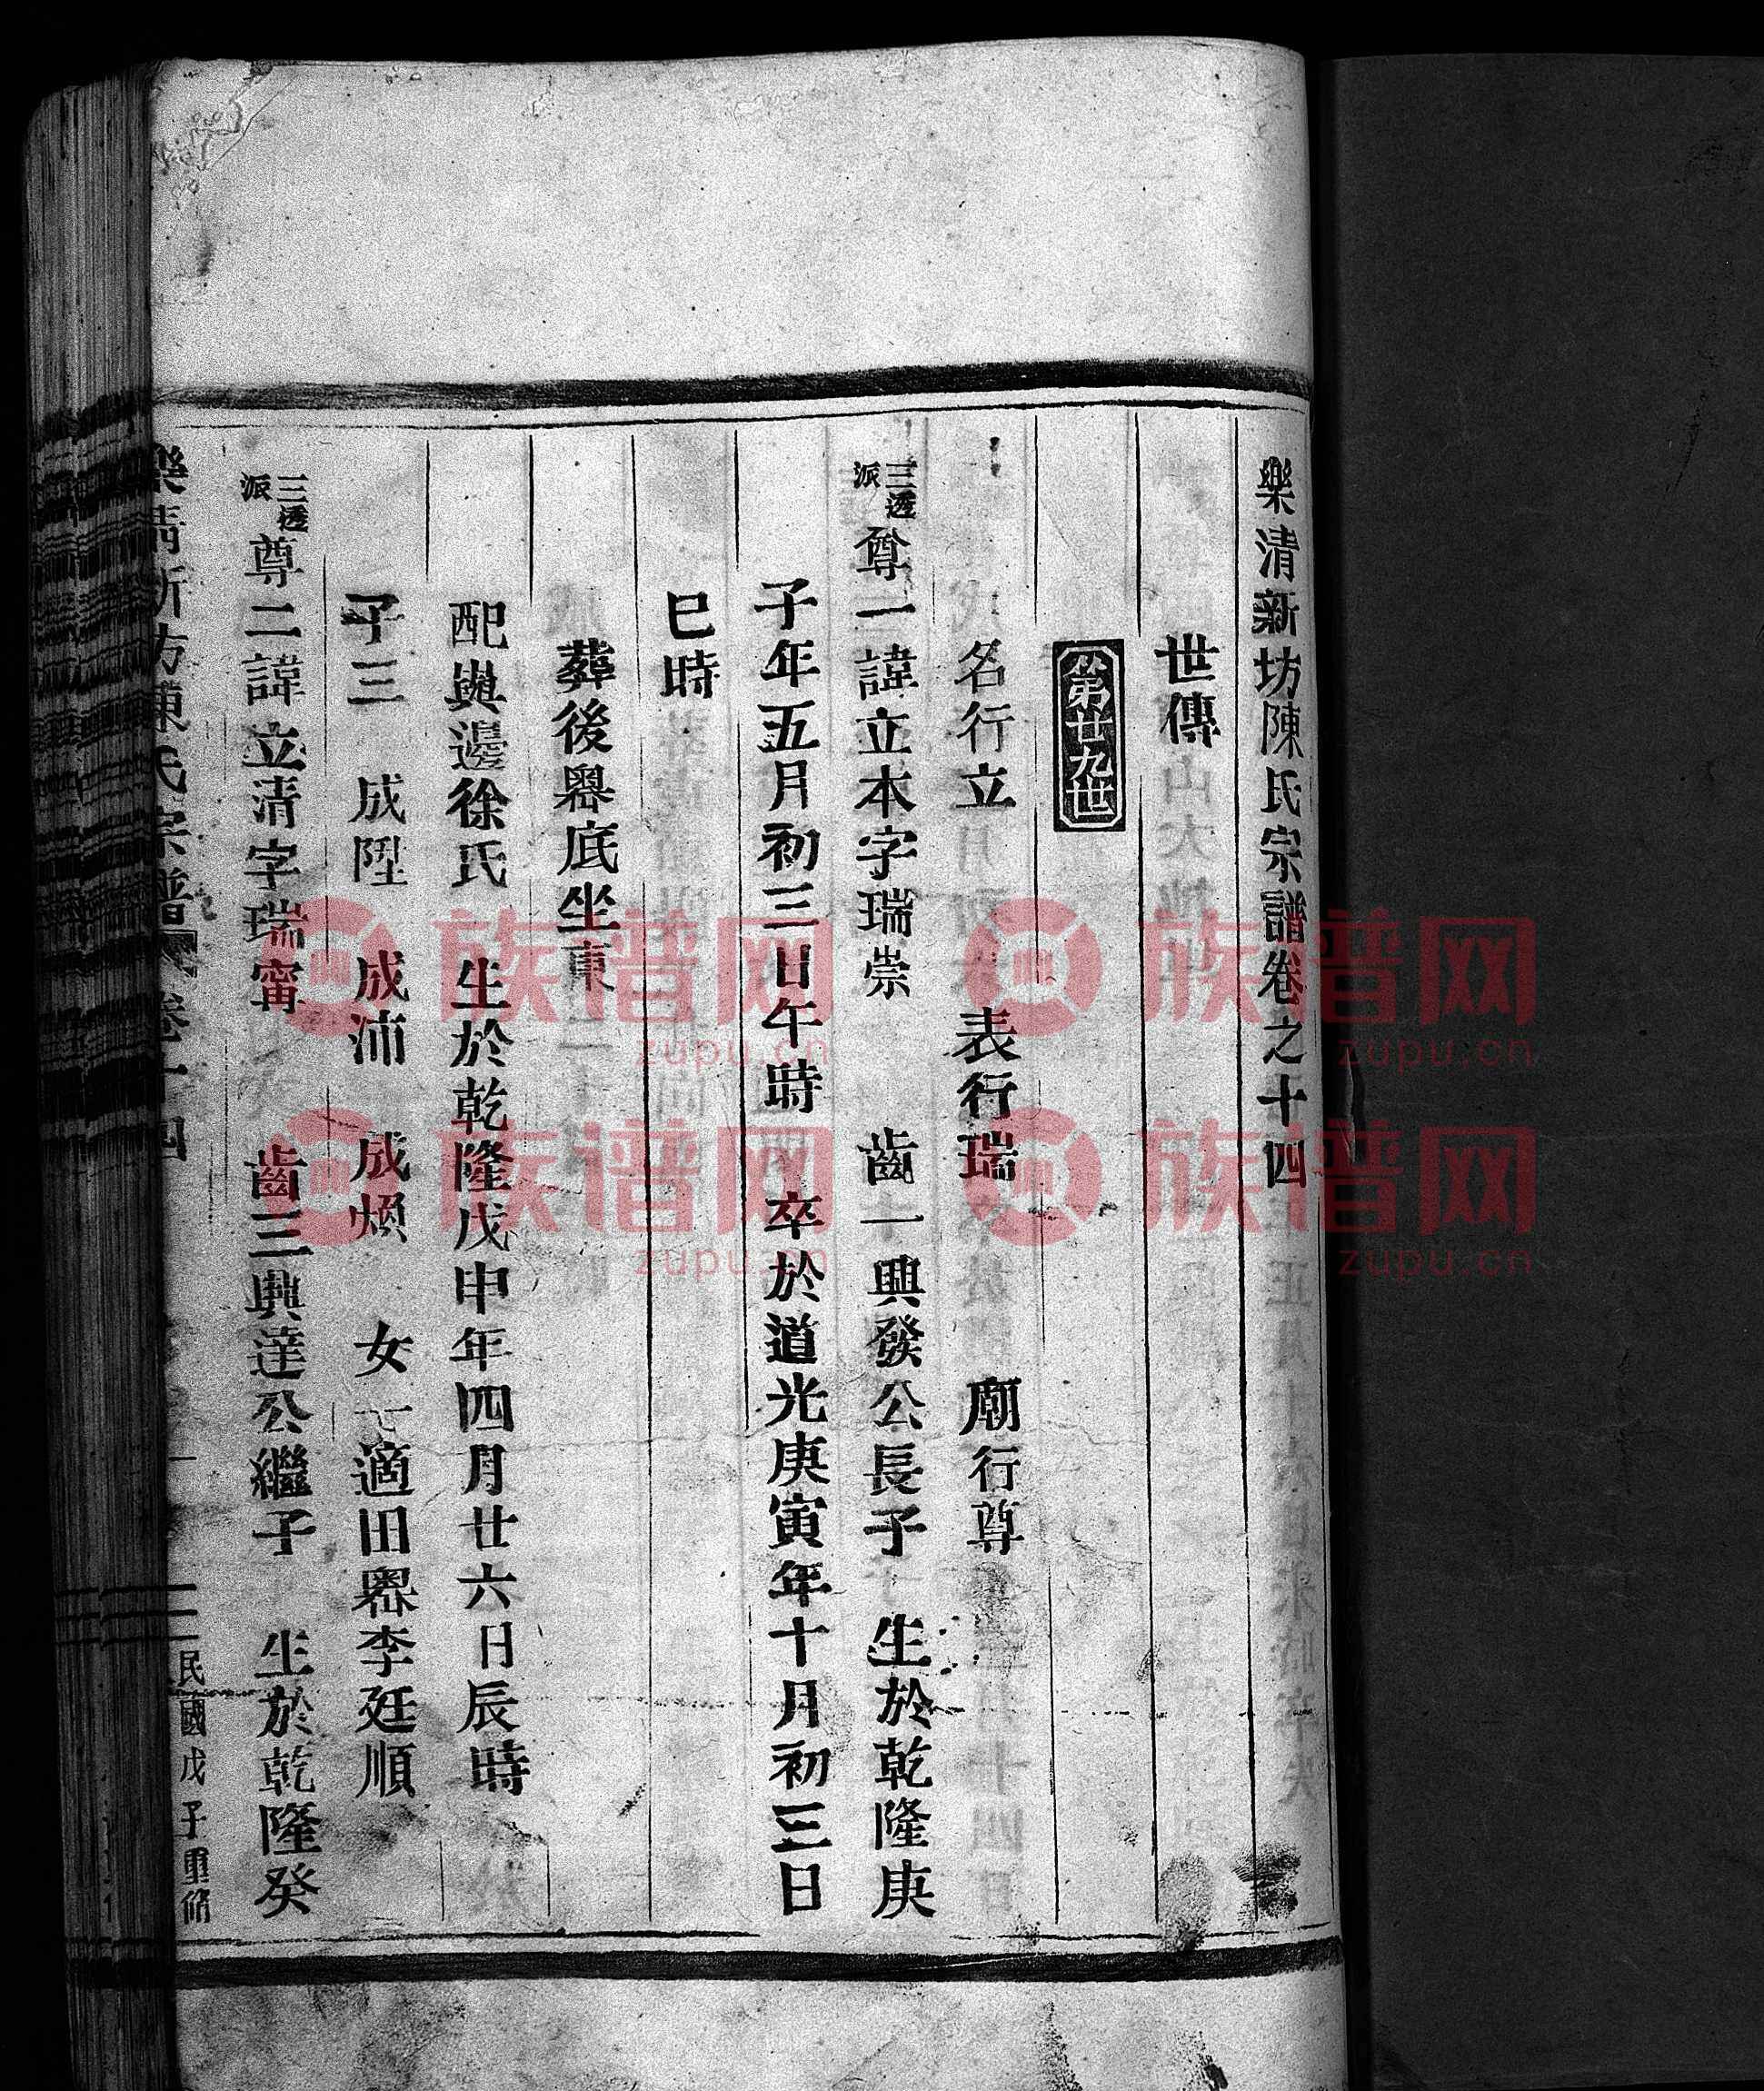 樂清新坊陳氏宗譜卷之十四
世傳
第廿九世
名行立 表行瑞 廟行尊
三透派 尊一諱立本字瑞崇 齒一興發公長子 生於乾隆庚
子年五月初三日午時 卒於道光庚寅年十月初三日
巳時
葬後嶴底坐東
配與邊徐氏 生於乾隆戊申年四月廿六日辰時
子三 成陞 成沛 成煩 女一適田嶴李廷順
三透派 尊二諱立清字瑞甯 齒三興達公繼子 生於乾隆癸
樂清新坊陳氏宗譜 卷十四 一 民國戊子重脩
族谱网
zupu.cn
族谱网
zupu.cn
族谱网
zupu.cn
族谱网
zupu.cn